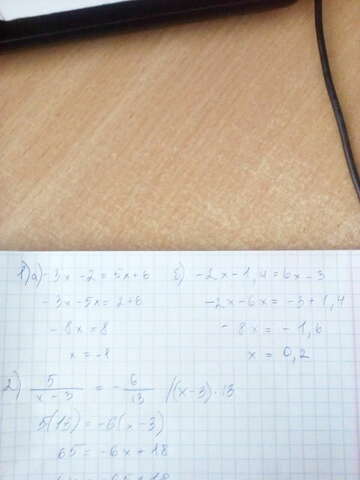 1) а) -3x - 2 = 5x + 6
-3x - 5x = 2 + 6
-8x = 8
x = -1
б) -2x - 1,4 = 6x - 3
-2x - 6x = -3 + 1,4
-8x = -1,6
x = 0,2
2) 5/(x - 3) = -6/13 /(x-3)·13
5(13) = -6(x - 3)
65 = -6x + 18